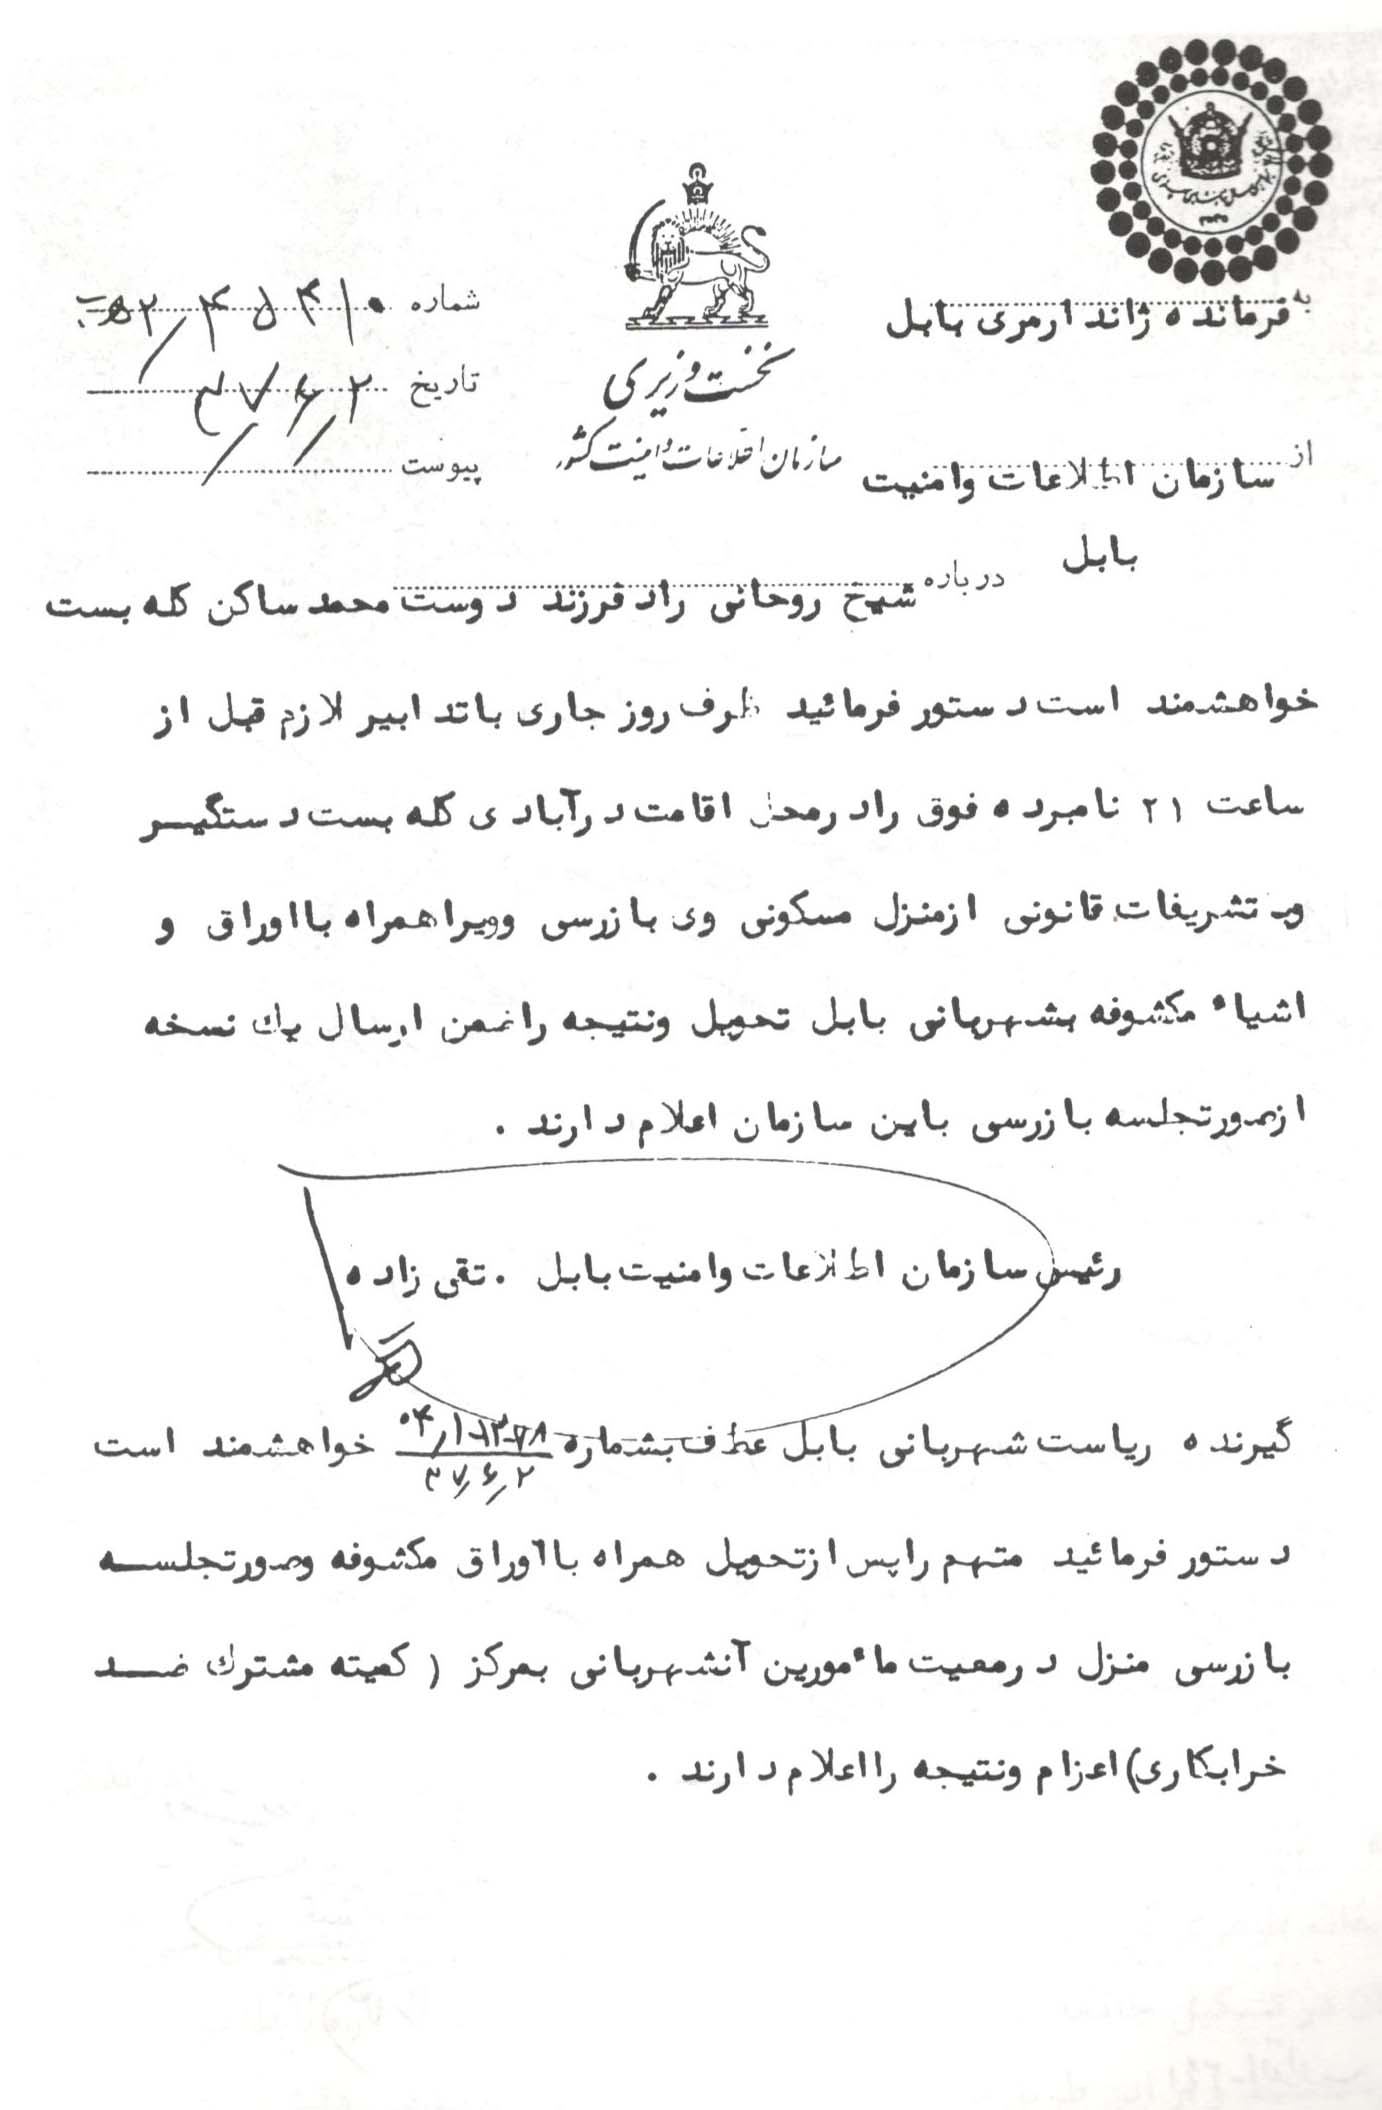 به فرمانده ژاندارمری بابل
نخست وزیری
سازمان اطلاعات و امنیت کشور
شماره
تاریخ ۳۷/۶/۲
پیوست
از سازمان اطلاعات وامنیت
بابل
درباره شیخ روحانی راد فرزند دوست محمد ساکن کله بست
خواهشمند است دستور فرمائید ظرف روز جاری باتدابیر لازم قبل از
ساعت ۲۱ نامبرده فوق رادرمحل اقامت درآبادی کله بست دستگیر
وبـ تشریفات قانونی ازمنزل مسکونی وی بازرسی وویراهمراه بااوراق و
اشیاء مکشوفه بشهربانی بابل تحویل ونتیجه راضمن ارسال یک نسخه
ازصورتجلسه بازرسی باین سازمان اعلام دارند .
رئیس سازمان اطلاعات وامنیت بابل . تقی زاده
گیرنده ریاست شهربانی بابل عطف بشماره ۳۷/۶/۲ خواهشمند است
دستور فرمائید متهم راپس ازتحویل همراه بااوراق مکشوفه وصورتجلسه
بازرسی منزل درمعیت ماءمورین آنشهربانی بمرکز ( کمیته مشترک ضد
خرابکاری) اعزام ونتیجه رااعلام دارند .